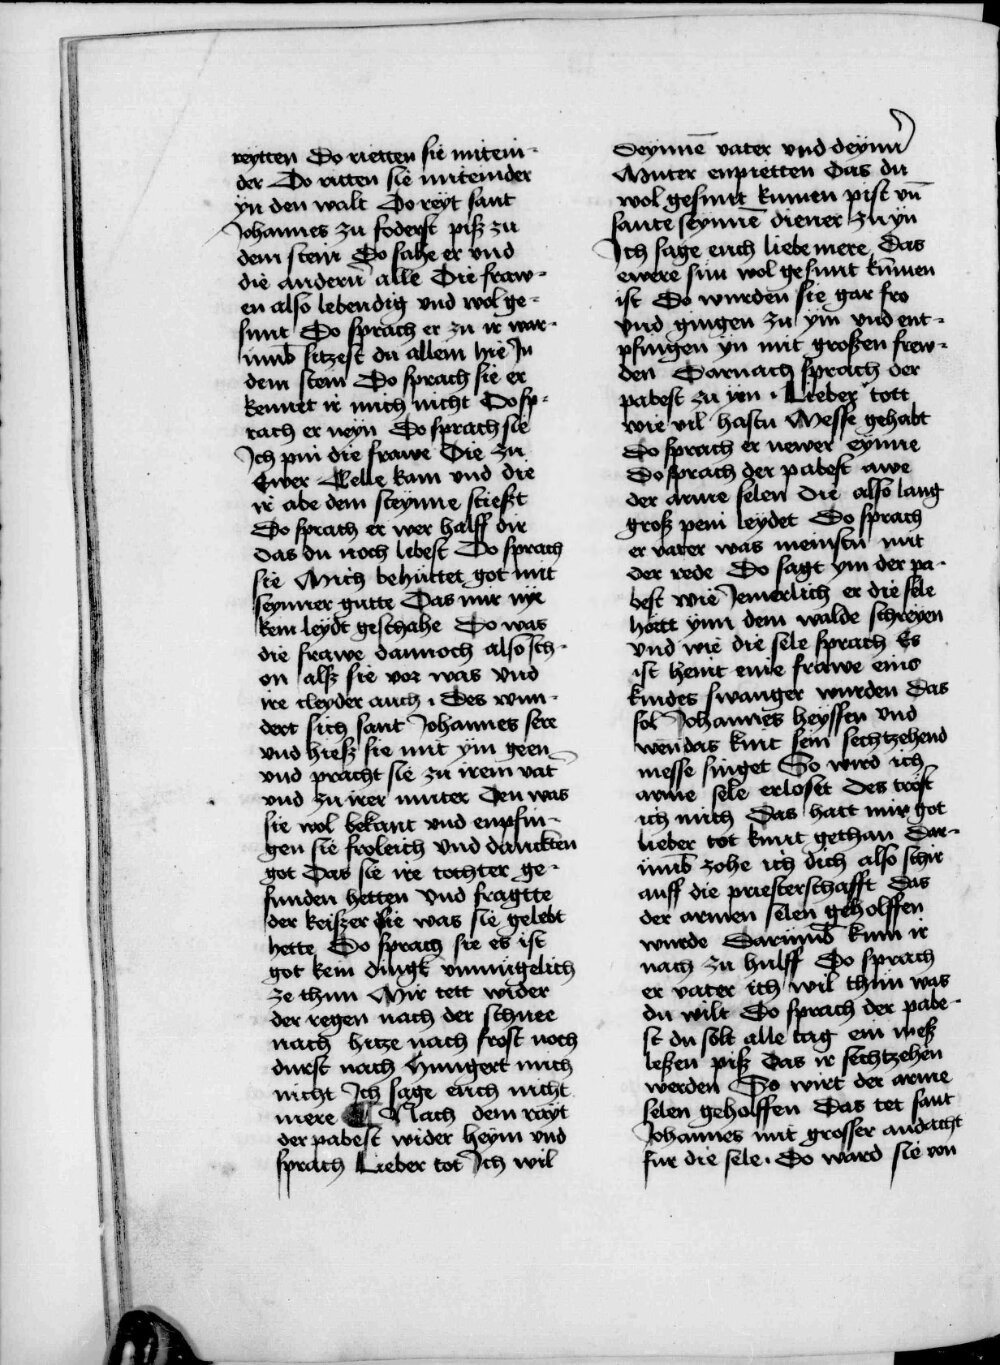 reytten Do rietten sie mitein-
der Do ritten sie miteinder
yn den walt Do reyt sant
Johannes zu foderst piß zu
dem stein Do sahe er vnd
die andern̄ alle Die fraw-
en also lebendig vnd wol ge-
sunt Do sprach er zu ir war-
umb̄ sitzest du allein hie In
dem stein Do sprach sie er
kennet ir mich nicht Do sp-
rach er neyn Do sprach sie
Ich pin die frawe Die zu
Ewer Celle kam vnd die
ir abe dem steynne stießt
Do sprach er wer halff dir
das du noch lebest Do sprach
sie Mich behüttet got mit
seynner gutte Das mir nye
kein leydt geschahe Do was
die frawe dannoch also sch-
on alß sie vor was vnd
ire cleyder auch . Des wun-
dert sich sant Johannes sere
vnd hieß sie mit ym geen
vnd pracht sie zu irem vat̄
vnd zu irer muter Den was
sie wol bekant vnd enpfin-
gen sie froleich vnd danckten
got Das sie ire tochter ge-
funden hetten vnd fragtte
der keiszer sie was sie gelebt
hette Do sprach sie es ist
got kein dingk vnmugelich
ze thun Mir tett wider
der regen nach der schnee
nach hitze nach frost noch
durst nach Hungert mich
nicht Ich sage euch nicht
mere Nach dem rayt
der pabest wider heym vnd
sprach Lieber tot Ich wil
Deynnē vater vnd deynn̄
Muter enpietten Das du
wol gesunt kumen pist vn̄
sante seynnē diener zu yn
Ich sage euch liebe mere Das
ewere sun wol gesunt kūmen
ist Do wurden sie gar fro
vnd gingen zu ym vnd ent-
pfingen yn mit großen frew-
den Darnach sprach der
pabest zu ym . Lieber tott
wie vil hastu Messe gehabt
Do sprach er newer eynne
Do sprach der pabest awe
der arme selen Die also lang
groß pein leydet Do sprach
er vater was meinstu mit
der rede Do sagt ym der pa-
best wie Jemerlich er die sele
hortt ynn dem walde schreyen
vnd wie die sele sprach Es
ist heint eine frawe eins
kindes swanger wurden Das
sol Johannes heyssen vnd
wen das kint sein sechtzehend
messe singet So wird ich
arme sele erloset Des trost
ich mich Das hatt mir got
lieber tot kunt gethan Dar-
umb̄ zohe ich dich also schir
auff die priesterschafft Das
der armen selen geholffen
wurde Darumb̄ kum ir
nach zu hulff Do sprach
er vater ich wil thun was
du wilt Do sprach der pabe-
st du solt alle tag ein meß
leßen piß das ir sechtzehen
werden So wirt der arme
selen geholffen Das tet sant
Johannes mit grosser andacht
fur die sele . Do ward sie von